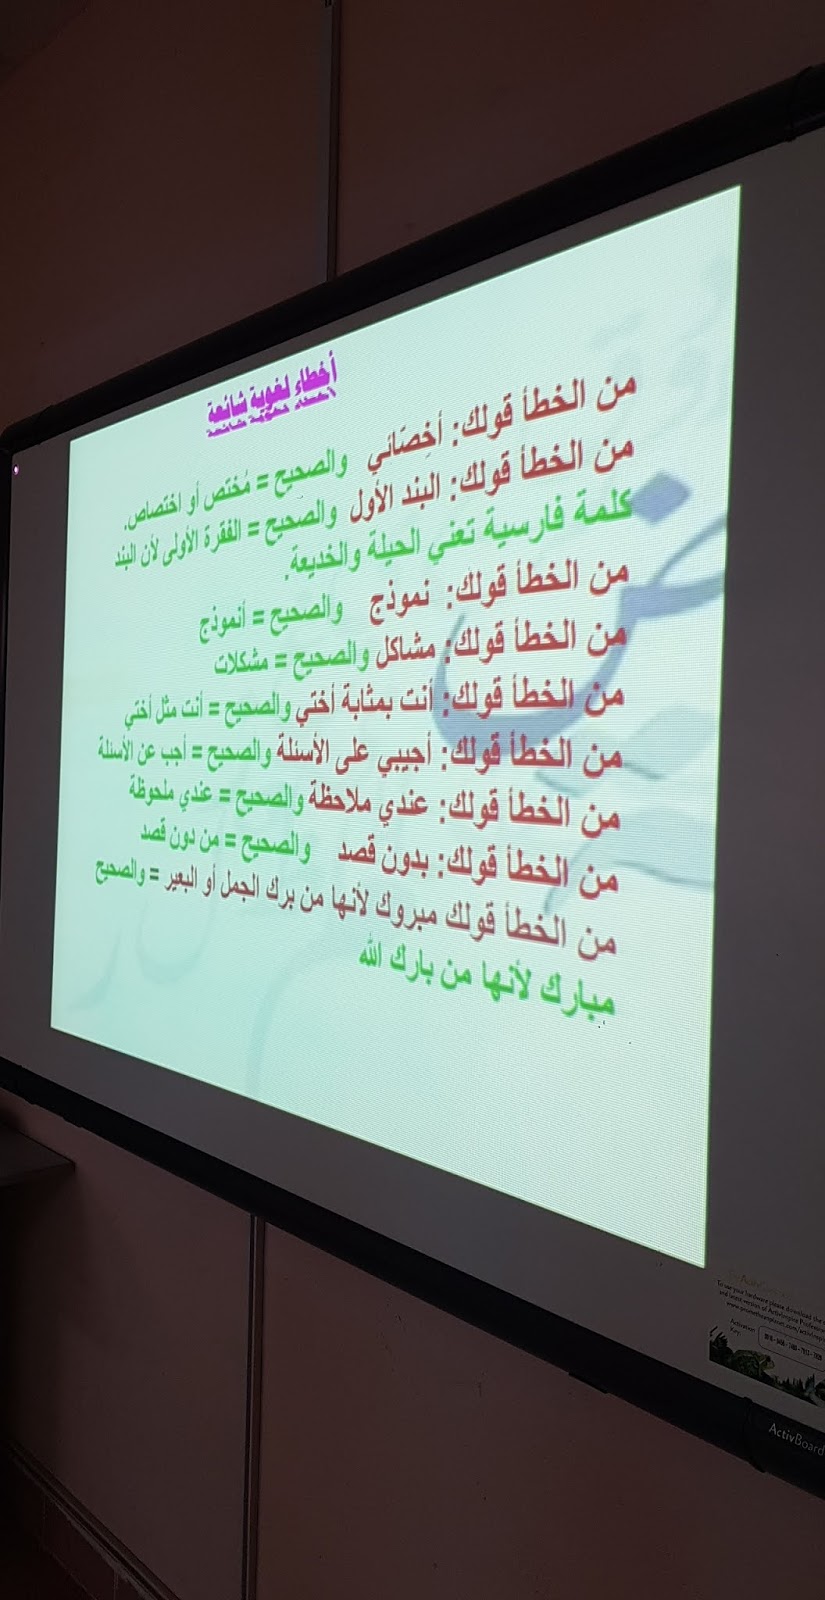 أخطاء لغوية شائعة
من الخطأ قولك: أخِصَائي والصحيح = مُختص أو اختصاص.
من الخطأ قولك: البند الأول والصحيح = الفقرة الأولى لأن البند
كلمة فارسية تعني الحيلة والخديعة.
من الخطأ قولك: نموذج والصحيح = أنموذج
من الخطأ قولك: مشاكل والصحيح = مشكلات
من الخطأ قولك: أنت بمثابة أختي والصحيح = أنت مثل أختي
من الخطأ قولك: أجيبي على الأسئلة والصحيح = أجب عن الأسئلة
من الخطأ قولك: عندي ملاحظة والصحيح = عندي ملحوظة
من الخطأ قولك: بدون قصد والصحيح = من دون قصد
من الخطأ قولك مبروك لأنها من برك الجمل أو البعير = والصحيح
مبارك لأنها من بارك الله
To use your hardware please download the
and latest version of ActivInspire Professional
www.prometheanplanet.com/activinspire
Activation
Key:
ActivBoard